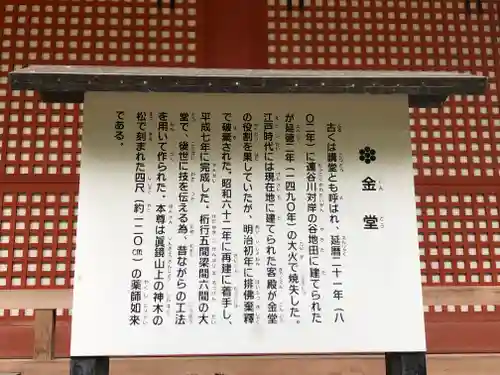 金堂
こんどう
古くは講堂とも呼ばれ、延暦二十一年(八
〇二年)に達谷川対岸の谷地田に建てられた
が延徳二年(一四九〇年)の大火で焼失した。
江戸時代には現在地に建てられた客殿が金堂
の役割を果していたが、明治初年に排佛棄釋
で破棄された。昭和六十二年に再建に着手し、
平成七年に完成した。桁行五間梁間六間の大
堂で、後世に技を伝える為、昔ながらの工法
を用いて作られた。本尊は眞鏡山上の神木の
松で刻まれた四尺(約一二〇㎝)の薬師如来
である。